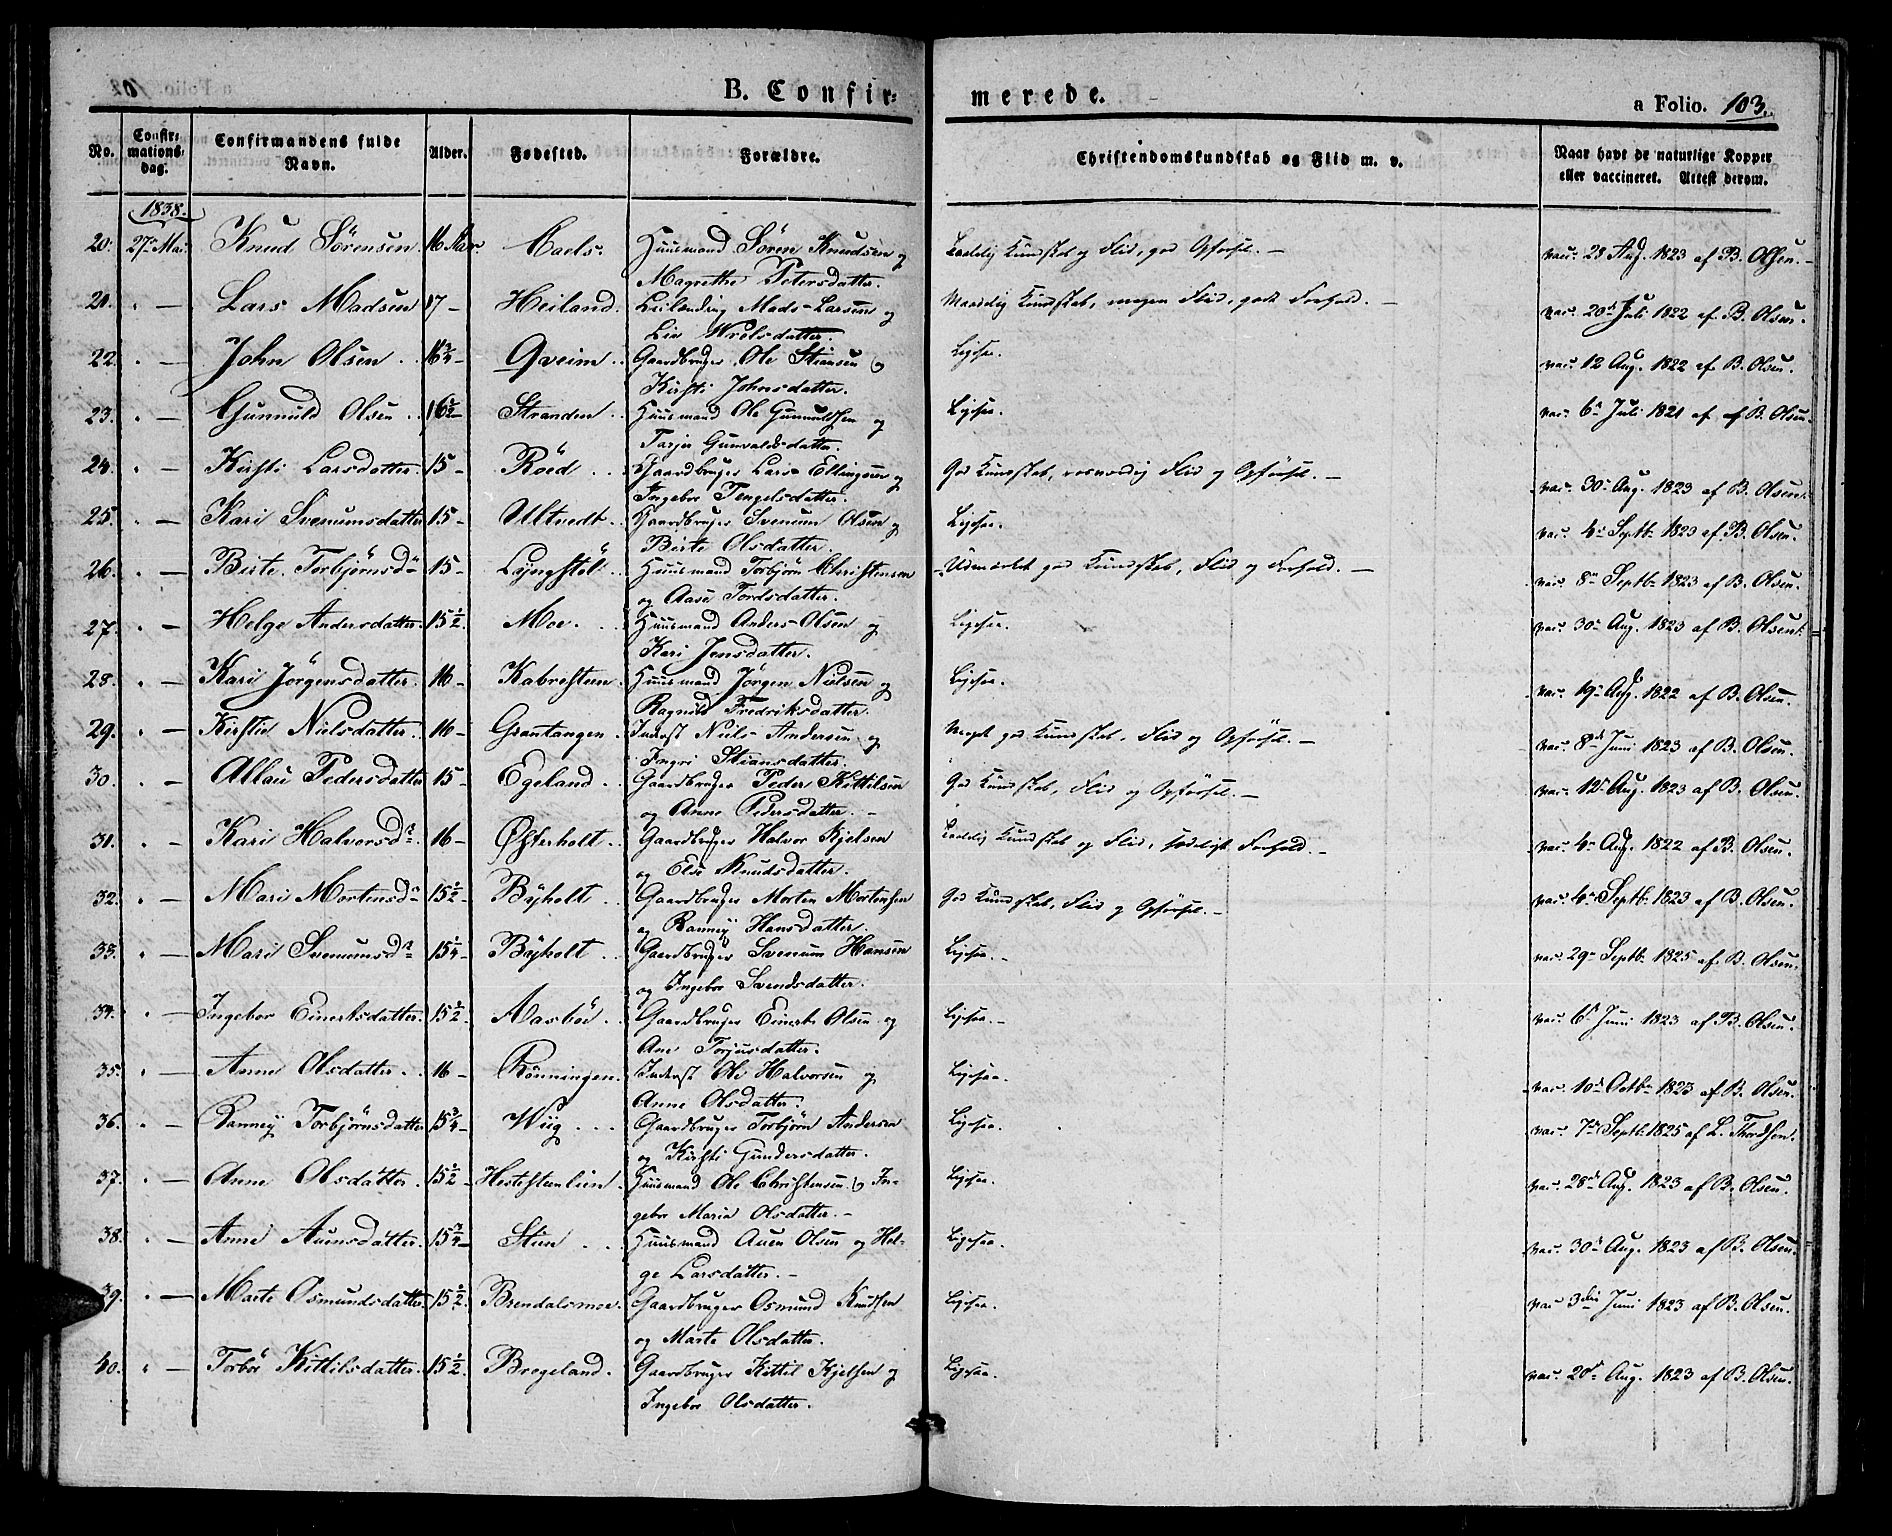 B. Confir-
merede.
a Folio. 103.
No. Confirmationsdag. Confirmandens fulde Navn. Alder. Fødested. Forældre. Christendomskundskab og Flid m. v. Naar havt de naturlige Kopper eller vaccineret. Attest derom.
1838.
20. 27de Mai. Knud Sörensen 16 Aar. Huusmand Sören Knudsen og god Opförsel. — vac. 28 Aug. 1823 af B. Olsen. —
Magrethe Petersdatter.
21. " — Lars Madsen 17 — Heiland. Leilænding Mads Larsen og Maadelig Kundskab, megen Flid, godt Forhold. — vac. 20de Juli 1822 af B. Olsen.
Liv datter
22. " — John Olsen . 16¾ — Qveim . Gaardbruger Ole Stiansen og Ligesaa. vac. 12 Aug. 1822 af B. Olsen.
Kirsti Johnsdatter.
23. " — Gunnuld Olsen . 16½ — Stranden . Huusmand Ole Gunnuldsen og Ligesaa. vac. 6te Juli 1821 af B. Olsen.
Tarjer Gunvaldsdatter
24. " — Kirsti Larsdatter. 15 — Röed . . Gaardbruger Lars Ellingsen og God Kundskab, rosværdig Flid og Opförsel. — vac. 30te Aug. 1823 af B. Olsen.
Ingebor Tengelsdatter.
25. " — Kari Svenumsdatter 15 — Ultvedt . Gaardbruger Svenum Olsen og Ligesaa. vac. 4de Septb. 1823 af B. Olsen.
Birte Olsdatter.
26. " — Birte Torbjörnsdr 15 — Lÿngstöl . Huusmand Torbjörn Christensen Udmærket god Kundskab, Flid og Forhold. — vac. 8de Septb. 1823 af B. Olsen.
og Aase Tordsdatter.
27. " — Helge Andersdatter. 15½ — Moe . . Huusmand Anders Olsen og Ligesaa. vac. 30te Aug. 1823 af B. Olsen.
Kari Jensdatter.
28. " — Kari Jörgensdatter. 16 — Kabresteen . Huusmand Jörgen Nielsen og Ligesaa. vac. 19de Aug. 1822 af B. Olsen.
Ragnild Fredriksdatter.
29. " — Kirstie Nielsdatter . 16 — Grantangen . Inderst Niels Andersen og Meget god Kundskab, Flid og Opförsel. — vac. 8de Juni 1823 af B. Olsen.
Ingri Stiansdatter.
30. " — Pedersdatter 15 — Egeland . . Gaardbruger Peder Kittilsen God Kundskab, Flid og Opförsel. — vac. 12te Aug. 1823 af B. Olsen.
og Anne Pedersdatter. —
31. " — Kari Halvorsdr. 16 — Østerholt . Gaardbruger Halvor Kjelsen Kundskab og Flid, sædeligt Forhold. — vac. 4de Aug. 1822 af B. Olsen.
og Else Knudsdatter.
32. " — Mari Mortensdr 15½ — Bÿholt . Gaardbruger Morten Mortensen God Kundskab, Flid og Opförsel. — vac. 4de Septb. 1823 af B. Olsen.
og Rannei Hansdatter.
33. " — Mari Svenumsdr 15¼ — Bÿholt . . Gaardbruger Svenum Hansen Ligesaa. — vac. 29de Septb. 1825 af B. Olsen.
og Ingebor Svendsdatter.
34. " — Ingebor Einertsdatter. 15½ Aasböe . . Gaardbruger Einert Olsen og Ligesaa. — vac. 6te Juni 1823 af B. Olsen.
Ane Torjusdatter.
35. " — Anne Olsdatter . . 16 — Rönningen. Inderst Ole Halvorsen og Ligesaa. vac. 10de Octb. 1823 af B. Olsen.
Anne Olsdatter.
36. " — Rannei Torbjörnsdatter 15¾ — Wiig . . . Gaardbruger Torbjörn Andersen Ligesaa. vac. 7de Septb. 1825 af L. Thordsen.
og Kirsti Gundersdatter.
37. " — Anne Olsdatter . 15½ — Hestesteenlien . Huusmand Ole Christensen og In- Ligesaa. vac. 28de Aug. 1823 af B. Olsen.
gebor Maria Olsdatter. —
38. " — Anne Auensdatter. Steen . . . Huusmand Auen Olsen og Hel- Ligesaa. vac. 30te Aug. 1823 af B. Olsen.
ge Larsdatter. —
39. " — Marte Osmundsdatter. 15½ Brendalsmoe. Gaardbruger Osmund Knudsen Ligesaa. vac. 3die Juni 1823 af B. Olsen.
og Marte Olsdatter.
40. " — Torbör Kittilsdatter. 15½ Bregeland. Gaardbruger Kittil Kjelsen og Ligesaa. vac. 20de Aug. 1823 af B. Olsen.
Ingebor Olsdatter.